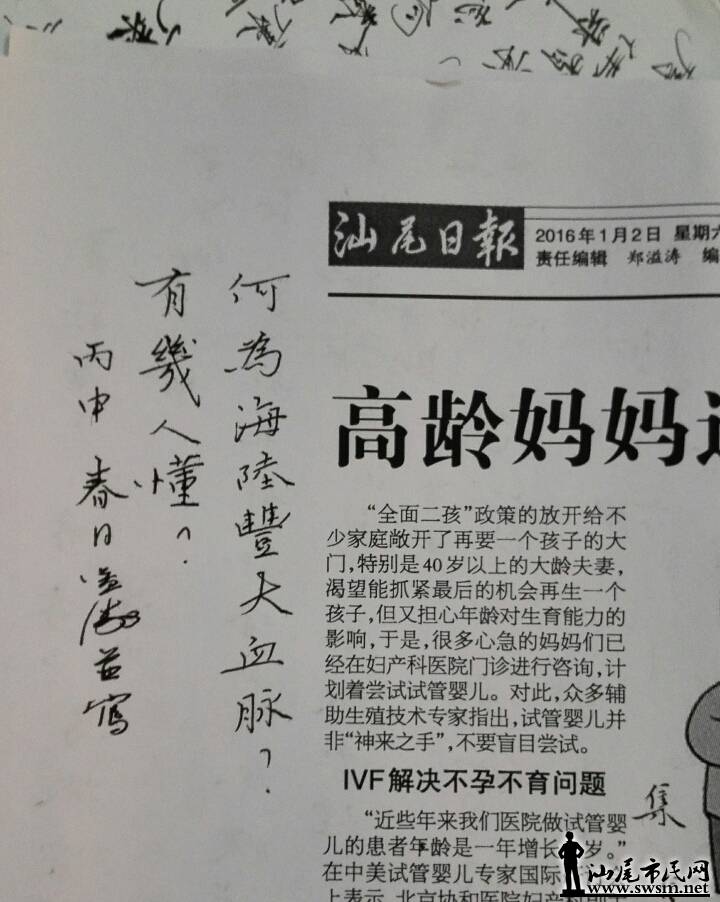 汕尾日報
2016年1月2日 星期六
责任编辑 郑溢涛 编
何為海陸豐大血脉？
有幾人懂？
丙申春日
寫
高龄妈妈
“全面二孩”政策的放开给不
少家庭敞开了再要一个孩子的大
门，特别是40岁以上的大龄夫妻，
渴望能抓紧最后的机会再生一个
孩子，但又担心年龄对生育能力的
影响，于是，很多心急的妈妈们已
经在妇产科医院门诊进行咨询，计
划着尝试试管婴儿。对此，众多辅
助生殖技术专家指出，试管婴儿并
非“神来之手”，不要盲目尝试。
IVF解决不孕不育问题
“近些年来我们医院做试管婴
儿的患者年龄是一年增长 岁。”
在中美试管婴儿专家国际
上表示，北京协和医院妇产科
集
汕尾市民网
www.swsm.net